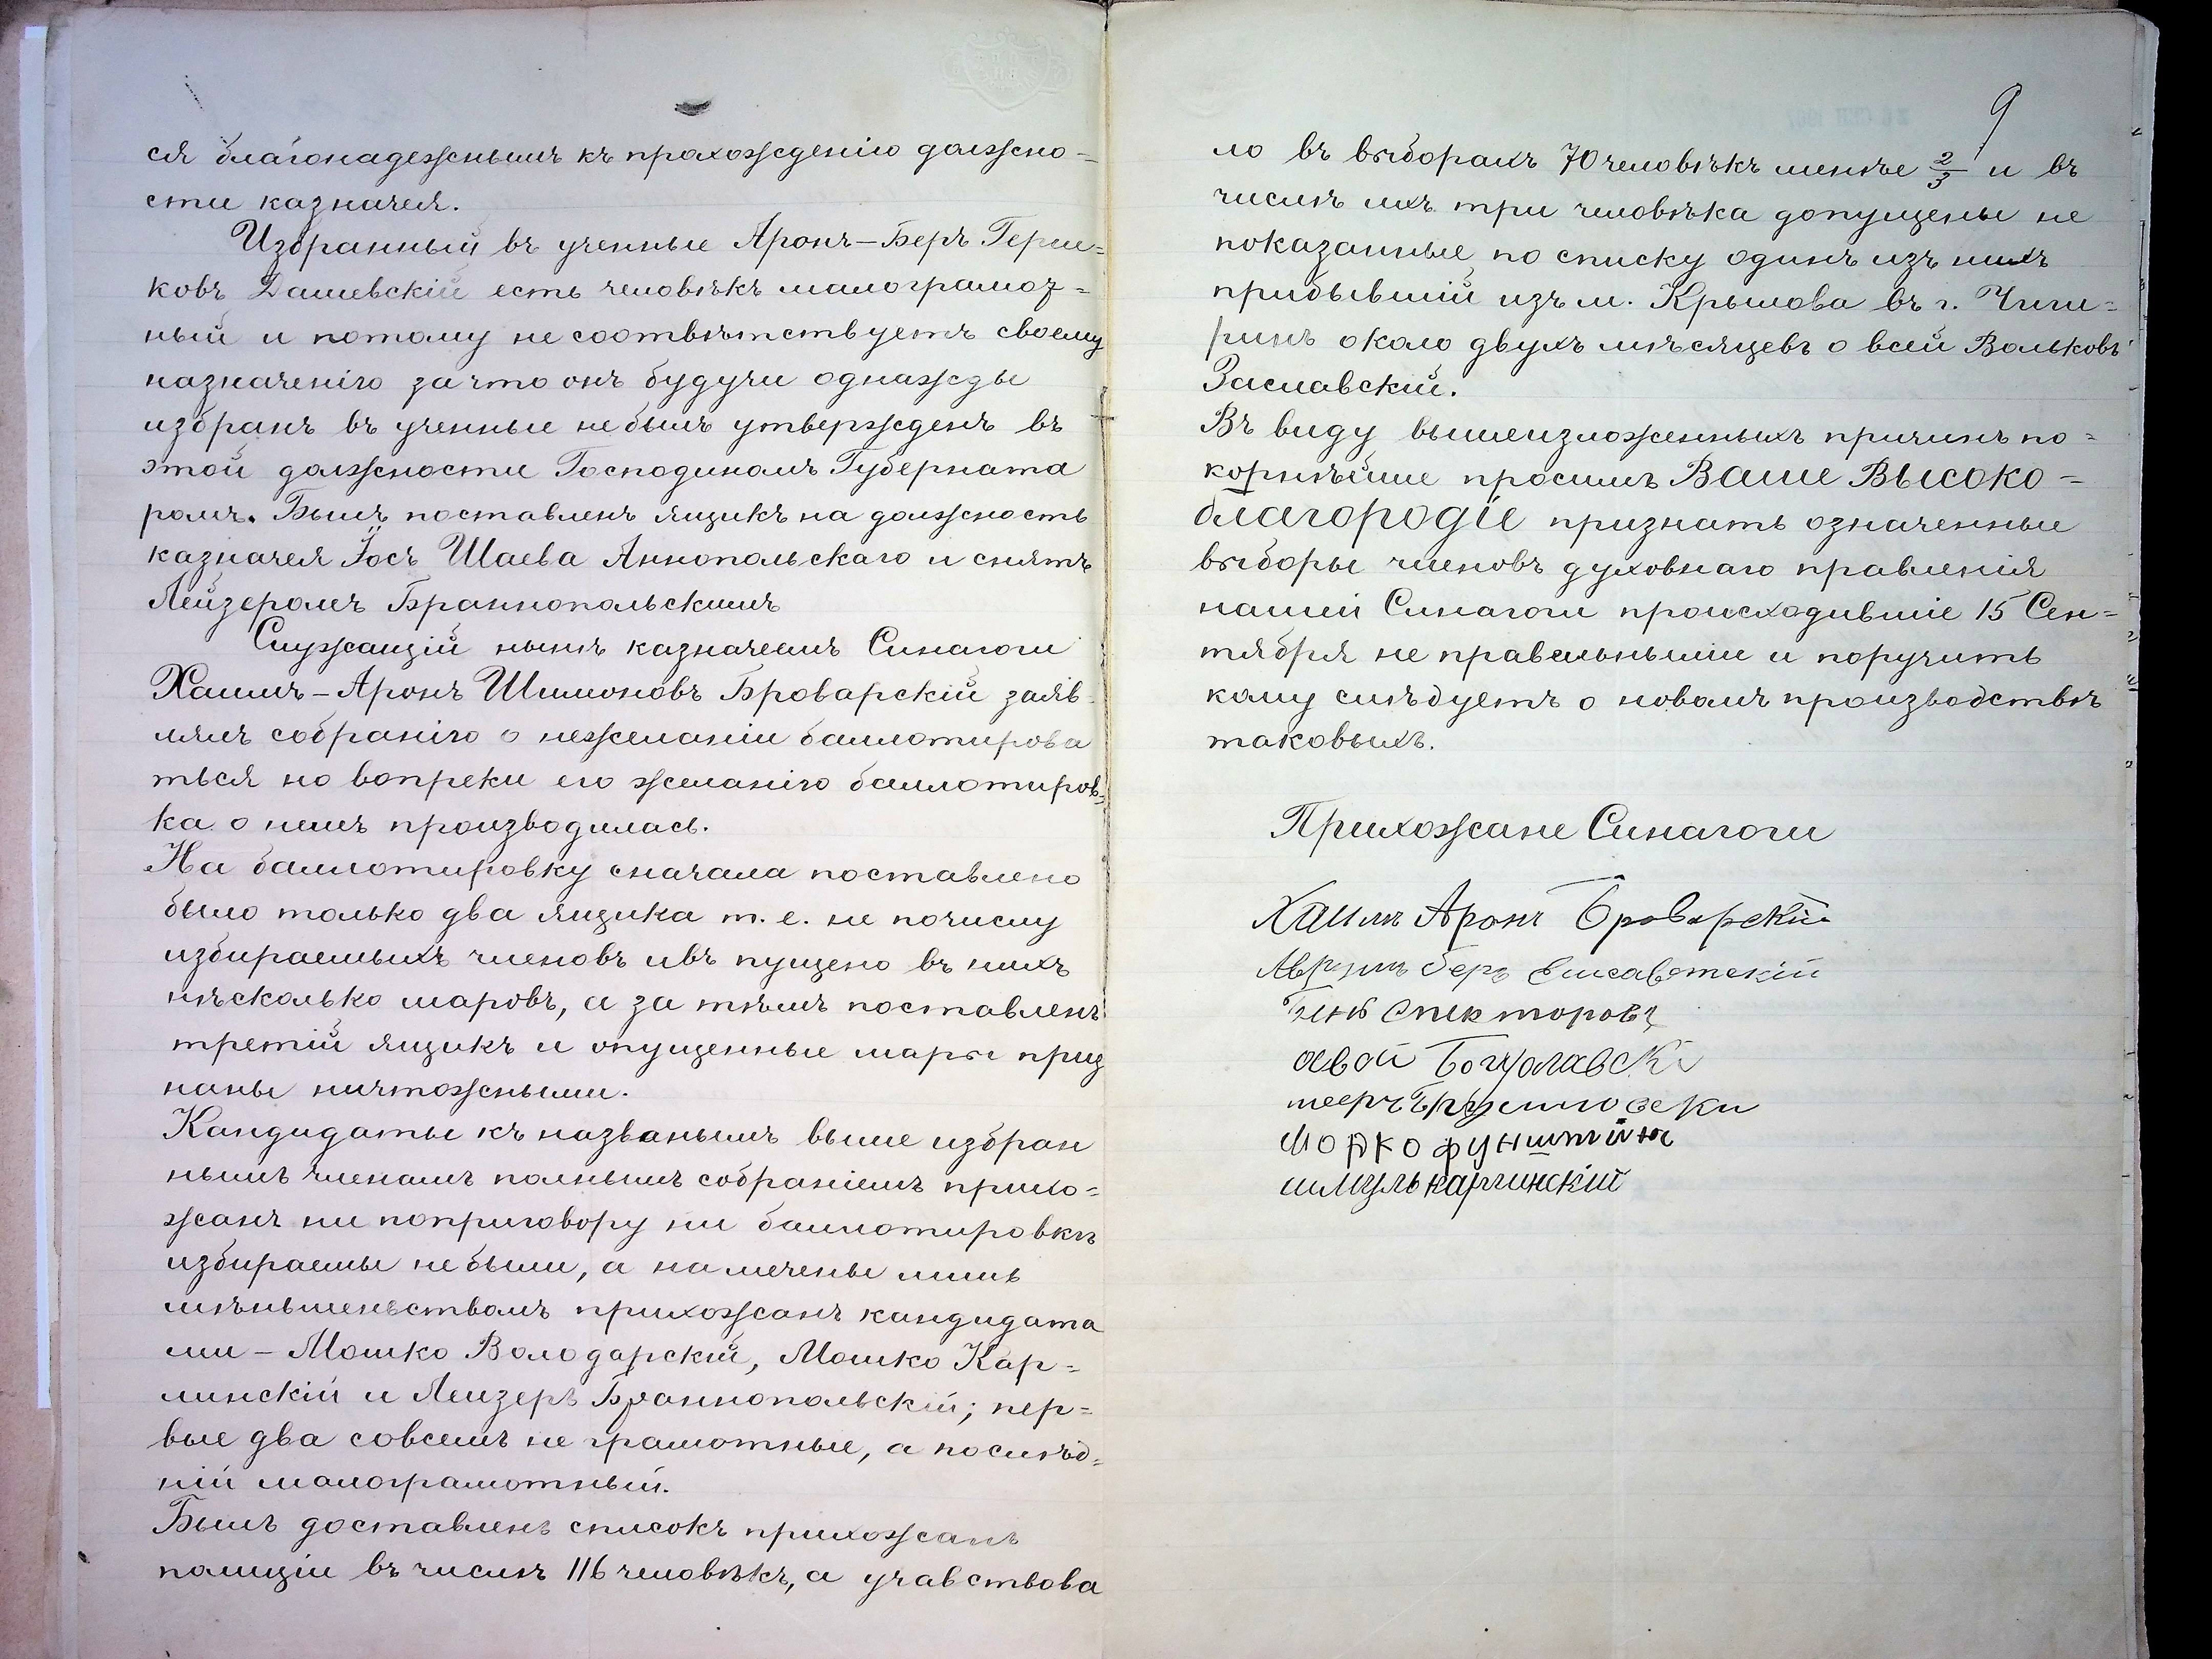 ся благонадежнымъ къ прохожденію должно=
сти казначея.
Избранный въ ученные Аронъ-Беръ Герш=
ковъ Дашевскій есть человѣкъ малограмот=
ный и потому не соотвѣтствуетъ своему
назначенію за что онъ будучи однажды
избранъ въ ученные не былъ утвержденъ въ
этой должности Господиномъ Губерната
ромъ. Былъ поставленъ ящикъ на должность
казначея Іосъ Шаева Аннопольскаго и снятъ
Лейзеромъ Браннопольскимъ
Служащій нынѣ казначеемъ Синагоги
Хаимъ-Аронъ Шимоновъ Броварскій заяв-
лялъ собранію о нежеланіи баллотирова
ться но вопреки его желанію баллотиров=
ка о немъ производилась.
На баллотировку сначала поставлено
было только два ящика т.е. не почислу
избираемыхъ членовъ ивъ пущено въ нихъ
нѣсколько шаровъ, а за тѣмъ поставленъ
третій ящикъ и опущенные шары приз
наны ничтожными.
Кандидаты къ названымъ выше избран
нымъ членамъ полнымъ собраніемъ прихо=
жанъ ни поприговору ни баллотировкѣ
избираемы небыли, а намечены лишь
мѣньшенствомъ прихожанъ кандидата
ми - Мошко Володарскій, Мошко Кар=
линскій и Леизеръ Браннопольскій; пер=
вые два совсемъ не грамотные, а послѣд=
ній малограмотный.
Былъ доставленъ списокъ прихожанъ
полиціи въ числѣ 116 человѣкъ, а учавствова
9
ло въ выборахъ 70 человѣкъ менѣе 2/3 и въ
числѣ ихъ три человѣка допущены не
показанные по списку одинъ изъ нихъ
прибывшій изъ м. Крылова въ г. Чиги=
ринъ около двухъ мѣсяцевъ овсей Вольковъ
Заславскій.
Въ виду вышеизложенныхъ причинъ по=
корнѣйше просимъ Ваше Высоко=
благородіе признать означенные
выборы членовъ духовнаго правленія
нашей Синагоги происходившіе 15 Сен=
тября не правельнымии и поручить
кому слѣдуетъ о новомъ производствѣ
таковыхъ.
Прихожане Синагоги
Хаимъ Аронъ Броварскій
Беръ Елисаветскій
Спекторовъ
Богуславскі
Мошко
шмуль карлинскій